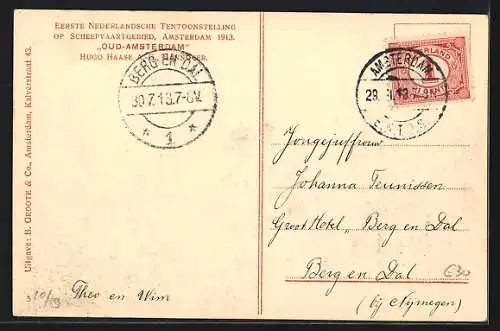 Eerste Nederlandsche Tentoonstelling
op Scheepvaartgebied, Amsterdam 1913.
„OUD-AMSTERDAM”
Hugo Haase
BERG EN DAL
30.7.13.7-8V.
* 1 *
AMSTERDAM
29.
Uitgave: B. Groote & Co., Amsterdam, Kalverstraat 43.
Jongejuffrouw
Johanna Teunissen
Groot Hotel „Berg en Dal
Berg en Dal
(bij Nymegen)
Theo en Wim
€30